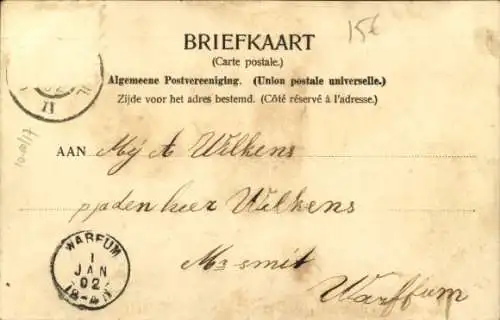 15€
BRIEFKAART
(Carte postale.)
Algemeene Postvereeniging. (Union postale universelle.)
Zijde voor het adres bestemd. (Côté réservé à l'adresse.)
AAN Mej A Wilkens
den heer Wilkens
smit
Warffum
WARFUM
1
JAN
02